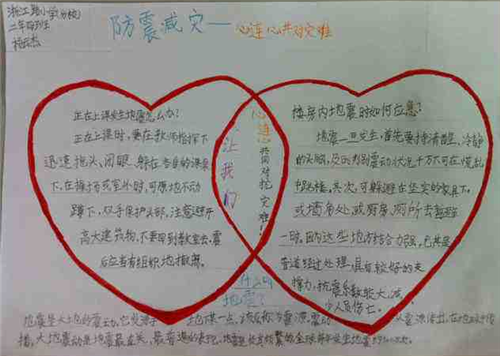 浙江路小学(分校)
二年四班
防震减灾——心连心共对灾难
正在上课发生地震怎么办?
正在上课时,要在教师指挥下
迅速抱头、闭眼、躲在各自的课桌
下,在操场或室外时,可原地不动
蹲下,双手保护头部,注意避开
高大建筑物,不要回到教室去,震
后应当有组织地撤离。
让我们
心连心
共同对抗灾难!
楼房内地震时如何应急?
地震一旦发生,首先要保持清醒、冷静
的头脑,及时判别震动状况,千万不可在慌乱
中跳楼,其次,可躲避在坚实的家具下,
或墙角处,或厨房、厕所去暂避
一时,因为这些地方结合力强,尤其是
管道经过处理,具有较好的支
撑力,抗震系数较大,减
少人员伤亡。
什么叫
地震?
地震是大地的震动,它发源于地球某一点,该点称为震源,震动从震源传出,在地球中传
播,大地震动是地震最直观、最普遍的表现。